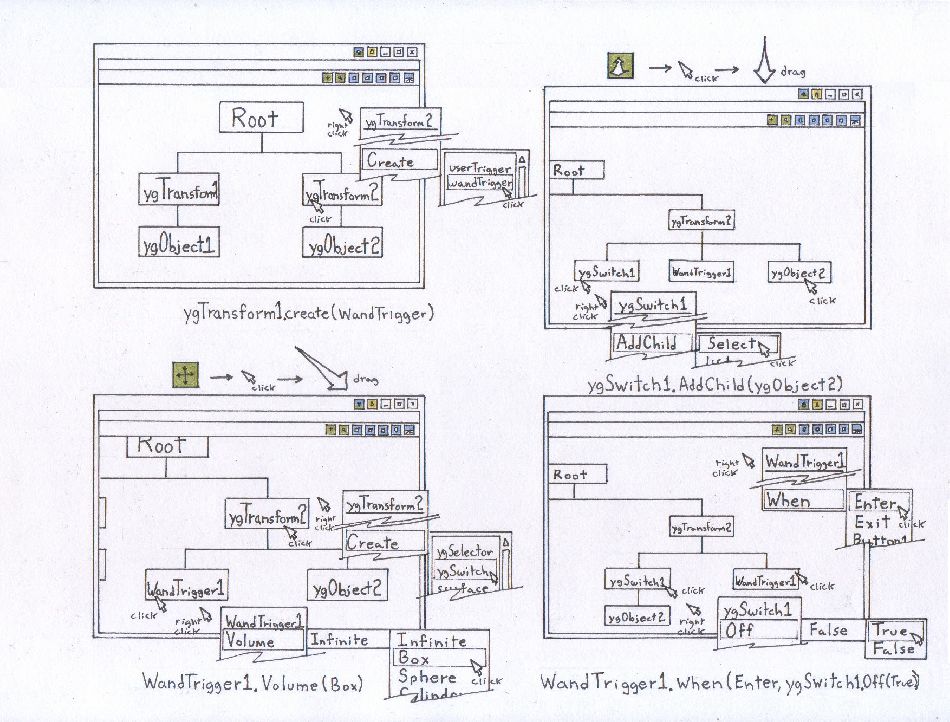 Root
right click
ygTransform2
Create
userTrigger
wandTrigger
click
ygTransform1
ygTransform2
click
ygObject1
ygObject2
ygTransform1.create(WandTrigger)
click
drag
Root
ygTransform2
ygSwitch1
WandTrigger1
ygObject2
click
click
right click
ygSwitch1
AddChild
Select
click
ygSwitch1.AddChild(ygObject2)
click
drag
Root
ygTransform2
click
right click
ygTransform2
Create
ygSelector
ygSwitch
surface
WandTrigger1
ygObject2
click
right click
WandTrigger1
Volume
Infinite
Infinite
Box
Sphere
Cylinder
click
WandTrigger1.Volume(Box)
right click
WandTrigger1
When
Enter
Exit
Button1
click
Root
ygTransform2
ygSwitch1
click
WandTrigger1
click
ygObject2
right click
ygSwitch1
Off
False
True
False
WandTrigger1.When(Enter, ygSwitch1.Off(True))